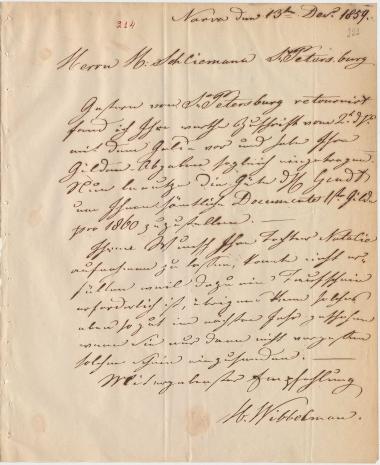 214
Narva den 13ten Decr. 1859.
222
Herrn H. Schliemann St. Petersburg
Gestern von St. Petersburg retournirt
fand ich Ihre werthe Zuschrift vom 2. d. Ms.
mit dem Gelde vor und habe Ihre
Gilden Abgaben sogleich eingetragen.
Nun benutze die Güte des H.
um Ihnen sämtliche Documente 1ster Gilde
pro 1860 zuzustellen.
Ihren Wunsch Ihre Tochter Natalie
aufnehmen zu lassen, konnte nicht er-
füllen weil dazu ein Taufschein
erforderlich ist, übrigens kann solches
eben so gut im nächsten Jahr geschehen
wenn Sie nur dann nicht vergessen
solchen Schein einzusenden.
Mit ergebenster Empfehlung
H. Wibbelman.